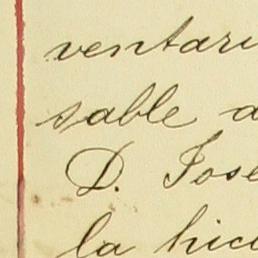 ventari
sable d
D. Jose
la hici